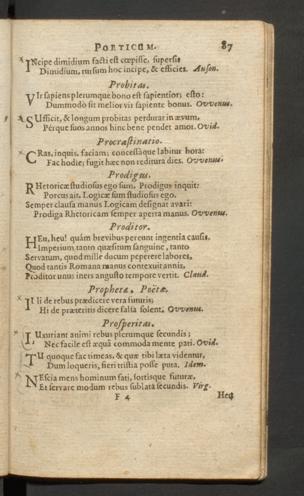 PORTICUM. 87
INcipe dimidium facti est cœpisse, supersit
Dimidium, rursum hoc incipe, & efficies. Auson.
Probitas.
VIr sapiens plerumque bono est sapientior; esto:
Dummodò sit melior vir sapiente bonus. Ovvenus.
SUfficit, & longum probitas perdurat in ævum,
Pérque suos annos hinc bene pendet amor. Ovid.
Procrastinatio.
CRas, inquis, faciam; concessáque labitur hora:
Fac hodie; fugit hæc non reditura dies. Ovvenus.
Prodigus.
RHetoricæ studiosus ego sum, Prodigus inquit:
Porcus ait, Logicæ sum studiosus ego.
Semper clausa manus Logicam designat avari:
Prodiga Rhetoricam semper aperta manus. Ovvenus.
Proditor.
HEu, heu! quàm brevibus pereunt ingentia causis,
Imperium, tanto quæsitum sanguine, tanto
Servatum, quod mille ducum peperere labores,
Quod tantis Romana manus contexuit annis,
Proditor unus iners angusto tempore vertit. Claud.
Prophetæ, Poëtæ.
ILli de rebus prædicere vera futuris;
Hi de præteritis dicere falsa solent. Ovvenus.
Prosperitas.
LUxuriant animi rebus plerumque secundis;
Nec facile est æquâ commoda mente pati. Ovid.
TU quoque fac timeas, & quæ tibi læta videntur,
Dum loqueris, fieri tristia posse puta. Idem.
NEscia mens hominum fati, sortisque futuræ,
Et servare modum rebus sublata secundis. Virg.
F 4
Heu